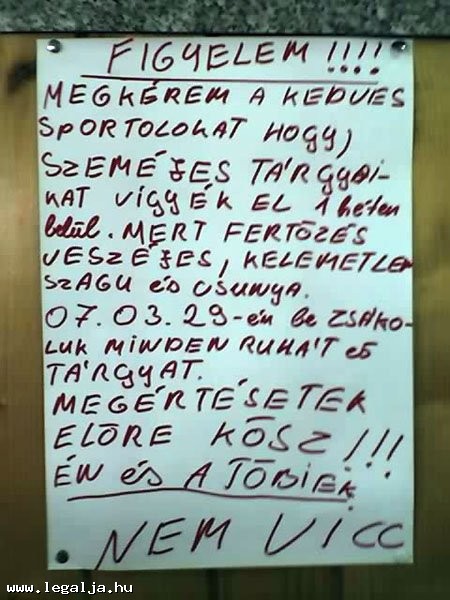 FIGYELEM !!!!
MEGKÉREM A KEDVES
SPORTOLOKAT HOGY,
SZEMÉJES TÁRGYAI-
KAT VIGYÉK EL 1 héten
belül. MERT FERTŐZÉS
VESZÉJES, KELEMETLEN
SZAGU és CSUNYA.
07.03.29-én be ZSÁKO-
LUK MINDEN RUHÁT és
TÁRGYAT.
MEGÉRTÉSETEK
ELŐRE KÖSZ!!!
ÉN és A TÖBIEK
NEM VICC
www.legalja.hu